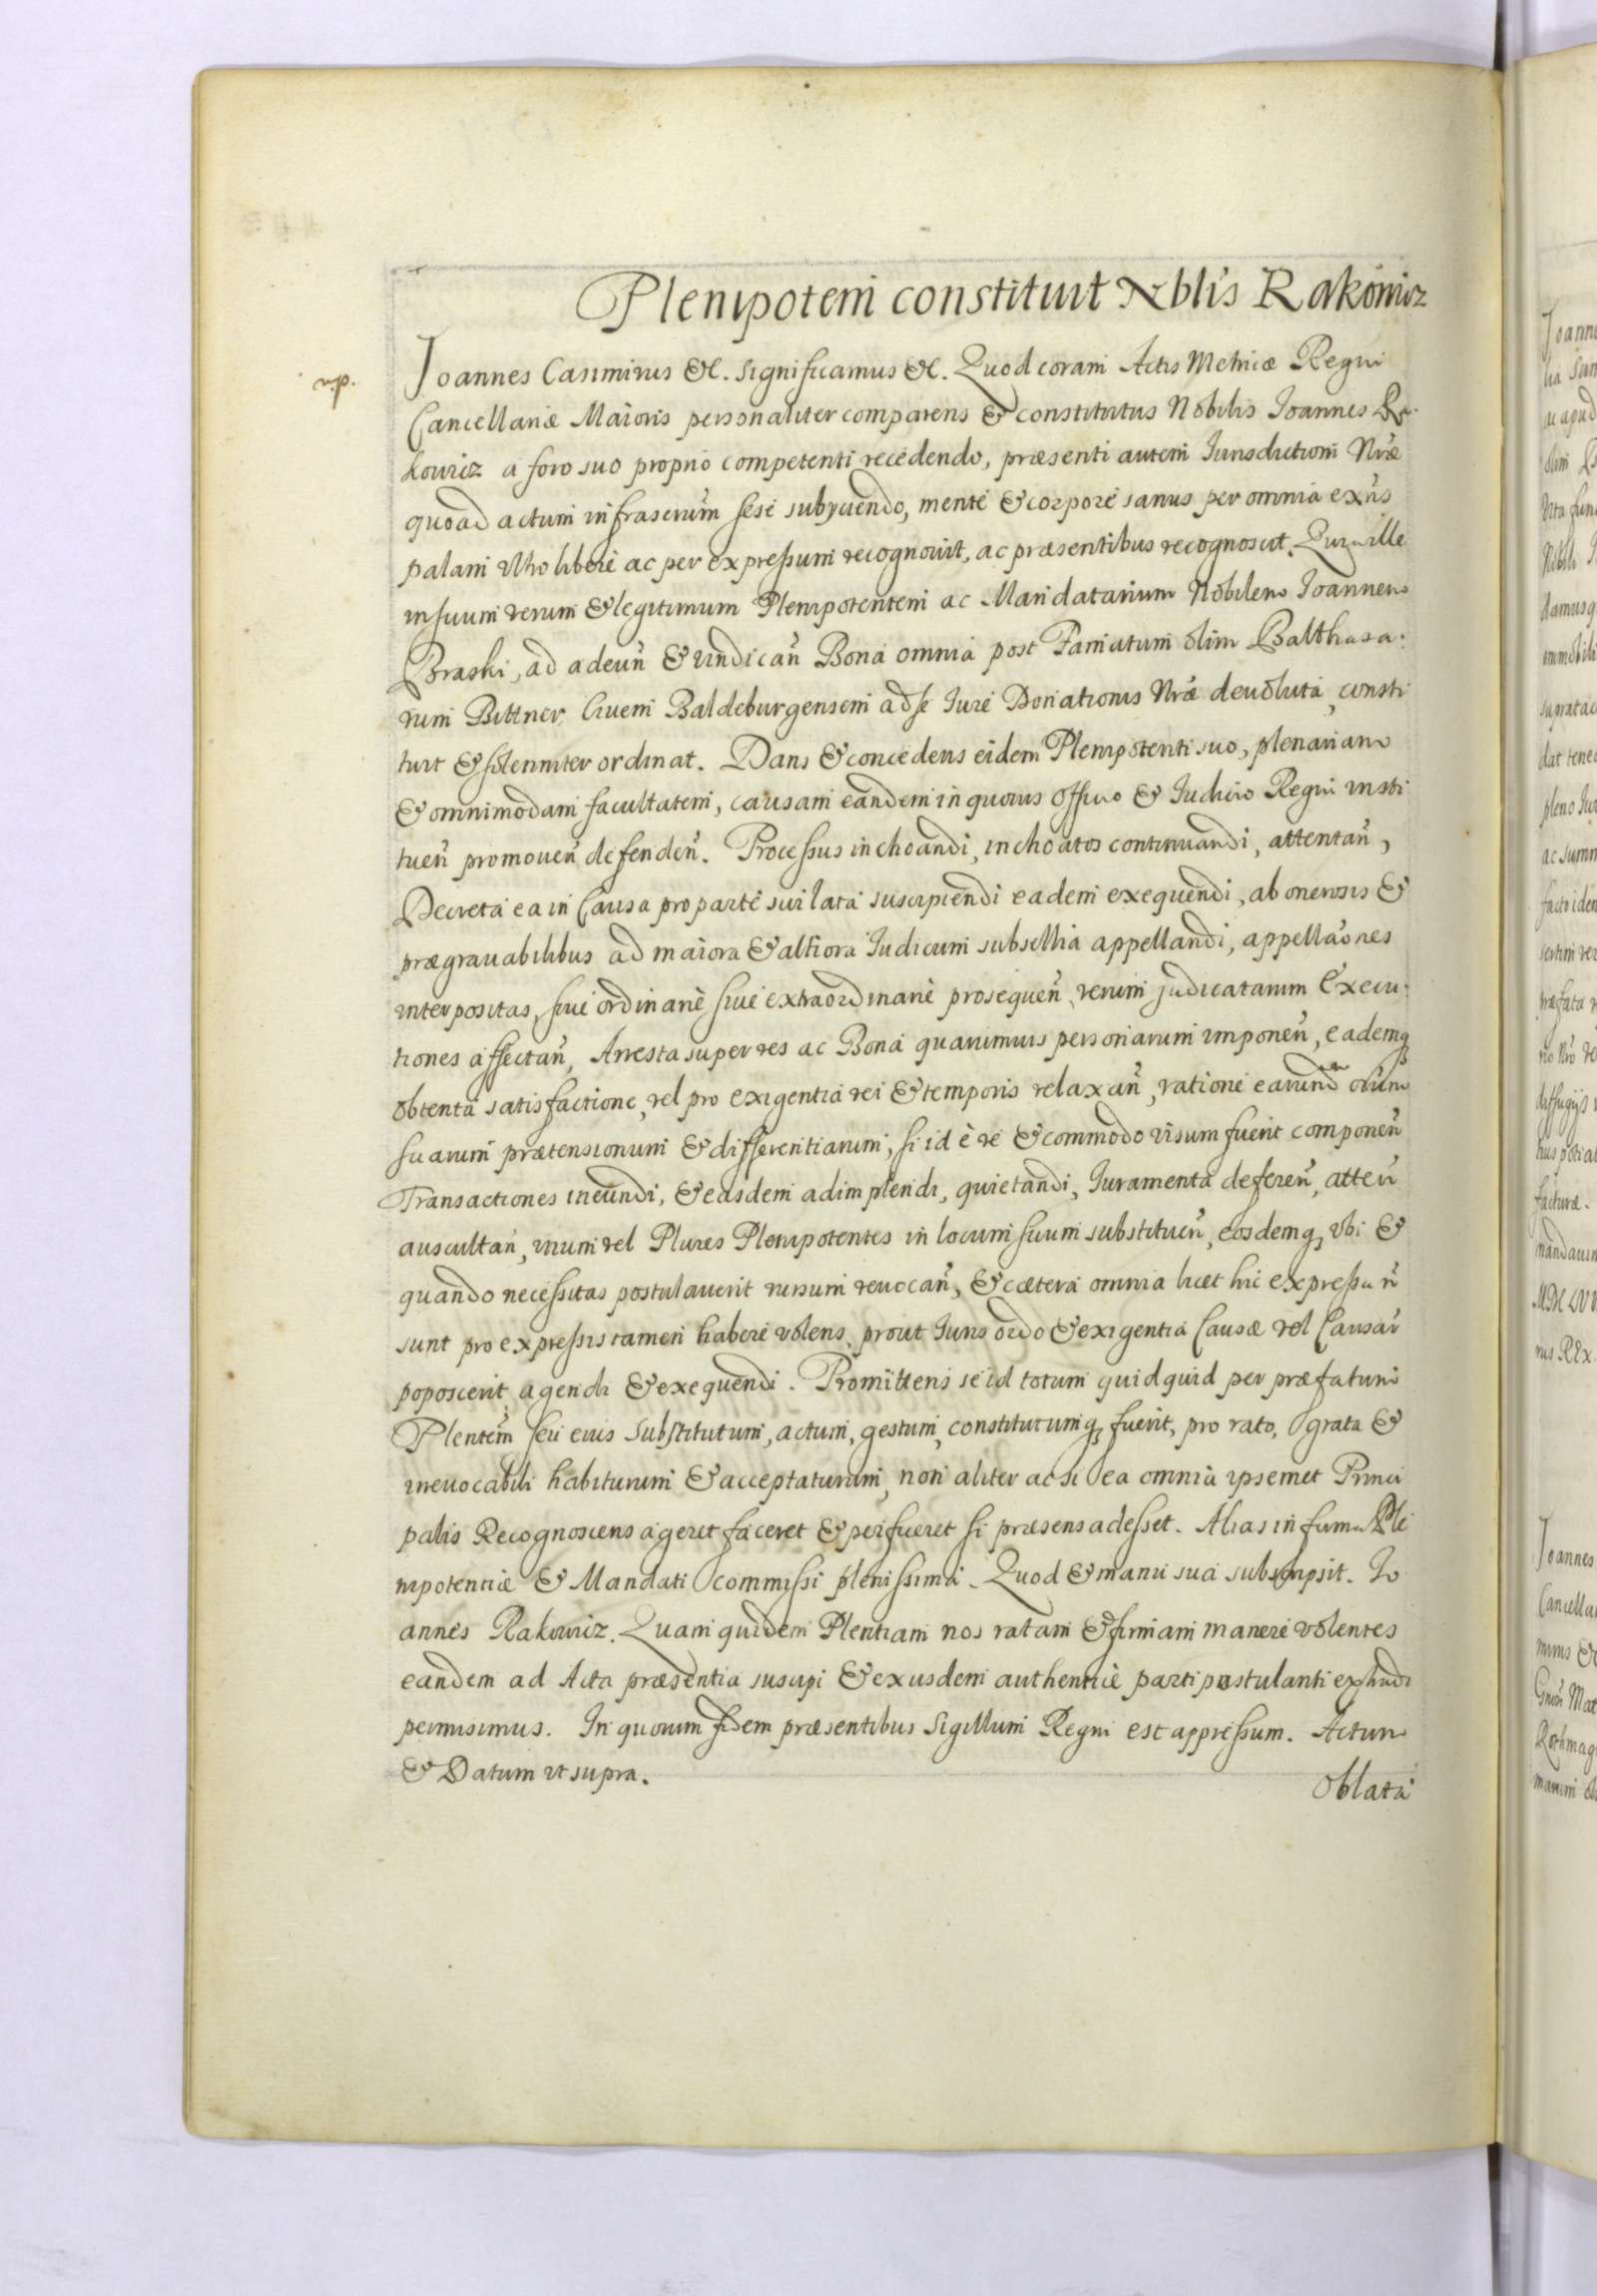 Plenipotem constituit Nblis Rakowicz
np. Joannes Casimirus &c. Significamus &c. Quod coram Actis Metricæ Regni
Cancellariæ Maioris personaliter comparens & constitutus Nobilis Joannes Ra-
kowicz a foro suo proprio competenti recedendo, præsenti autem Jurisdictioni Nræ
quoad actum infrascrium sese subyciendo, mente & corpore sanus per omnia exñs
palam vltro libere ac per expressum recognouit, ac præsentibus recognoscit. Quia ille
in suum verum & legitimum Plenipotentem ac Mandatarium Nobilem Joannem
Braski, ad adeuñ & vindicañ Bona omnia post Famatum olim Balthasa-
rum Bittner Ciuem Baldeburgensem ad se Jure Donationis Nræ deuoluta, consti
tuit & solenniter ordinat. Dans & concedens eidem Plenipotenti suo, plenariam
& omnimodam facultatem, causam eandem in quouis Officio & Judicio Regni insti
tueñ promoueñ defendeñ. Processus inchoandi, inchoatos continuandi, attentañ,
Decreta ea in Causa pro parte sui lata suscipiendi eadem exequendi, ab onerosis &
prægrauabilibus ad maiora & altiora Judicum subsellia appellandi, appellãones
interpositas, siue ordinariè siue extraordinariè prosequeñ, rerum judicatarum Execu-
tiones affectañ, Arresta super res ac Bona quarumuis personarum imponeñ, eademq
obtenta satisfactione, vel pro exigentia rei & temporis relaxañ, ratione earund oium
suarum prætensionum & differentiarum, si id è re & commodo visum fuerit componeñ
Transactiones ineundi, & easdem adimplendi, quietandi, Juramenta defereñ, atteñ
auscultañ, vnum vel Plures Plenipotentes in locum suum substitueñ, eosdemq vbi &
quando necessitas postulauerit rursum reuocañ, & cætera omnia licet hic expressa ñ
sunt pro expressis tamen habere volens, prout Juris ordo & exigentia Causæ vel Causar
poposcerit, agendi & exequendi. Promittens se id totum quidquid per præfatum
Plentem seu eius substitutum, actum, gestum, constitutumq fuerit, pro rato, grata &
irreuocabili habiturum & acceptaturum, non aliter ac si ea omnia ipsemet Princi
palis Recognoscens ageret faceret & perficeret si præsens adesset. Alias in forma Ple
nipotentiæ & Mandati commissi plenissima. Quod & manu sua subscripsit. Jo
annes Rakowicz. Quam quidem Plentiam nos ratam & firmam manere volentes
eandem ad Acta præsentia suscipi & ex iisdem authenticè parti postulanti extradi
permisimus. In quorum fidem præsentibus Sigillum Regni est appressum. Actum
& Datum vt supra.
Oblata